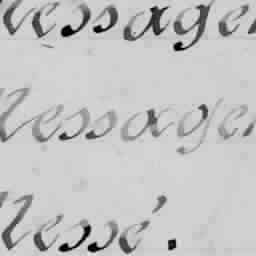 Messager
Messager
Messé.